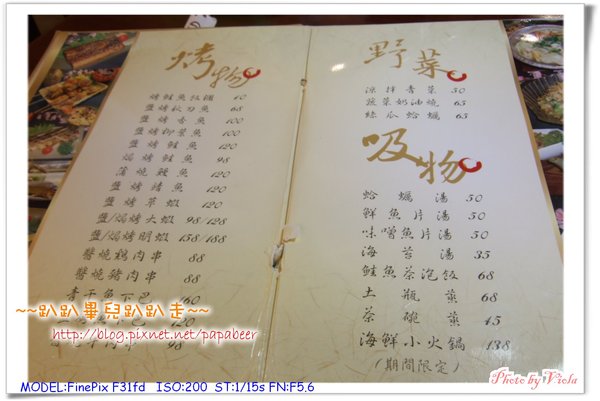 烤物
烤鮭魚飯糰 40
鹽烤秋刀魚 68
鹽烤香魚 100
鹽烤柳葉魚 100
鹽烤鮭魚 120
焗烤鮭魚 98
蒲燒鰻魚 120
鹽烤鯖魚 120
鹽烤草蝦 120
鹽/焗烤大蝦 98/128
鹽/焗烤明蝦 158/188
醬燒鷄肉串 88
醬燒豬肉串 88
魚下巴 160
120
肉串 98
野菜
涼拌青菜 50
蔬菜奶油燒 65
絲瓜蛤蠣 65
吸物
蛤蠣湯 50
鮮魚片湯 50
味噌魚片湯 50
海苔湯 35
鮭魚茶泡飯 68
土瓶蒸 68
茶碗蒸 45
海鮮小火鍋 138
(期間限定)
~~趴趴畢兒趴趴走~~
http://blog.pixnet.net/papabeer
Photo by Viola
MODEL:FinePix F31fd ISO:200 ST:1/15s FN:F5.6